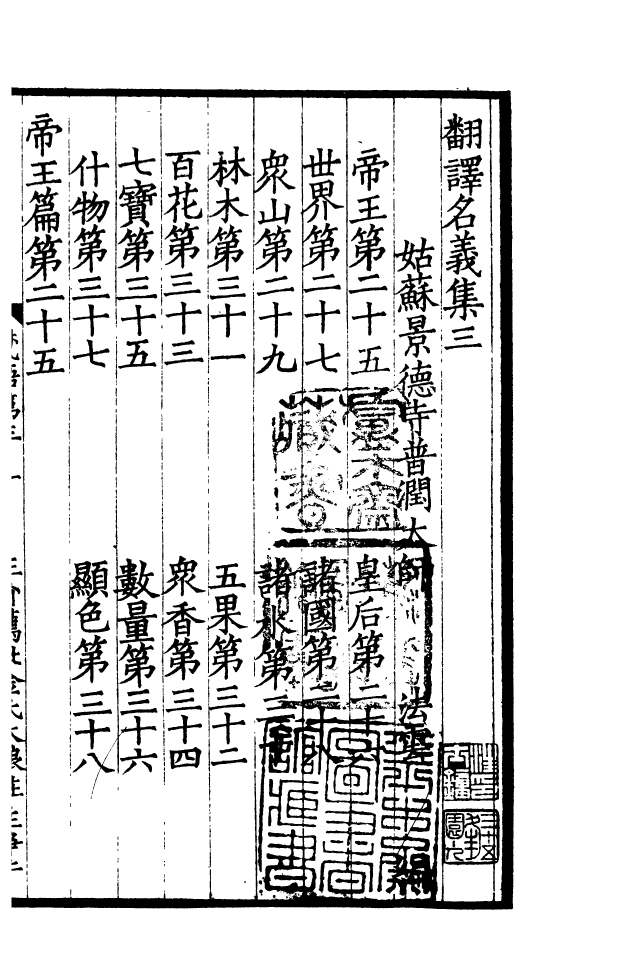 翻譯名義集三
姑蘇景德寺普潤大師　法雲　編
帝王第二十五　皇后第二十六
世界第二十七　諸國第二十八
眾山第二十九　諸水第三十
林木第三十一　五果第三十二
百花第三十三　眾香第三十四
七寶第三十五　數量第三十六
什物第三十七　顯色第三十八
帝王篇第二十五